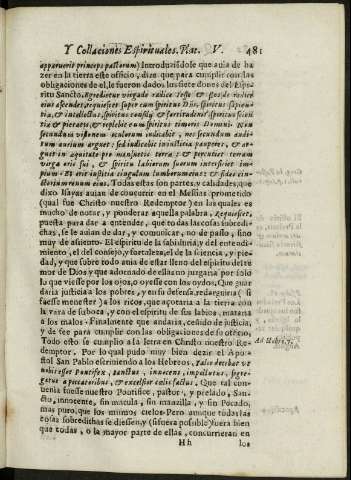 Y Collaciones Espirituales. Plat. V. 481
apparuerit princeps pastorum) Introduziẽdole que auia de ha
zer en la tierra este officio, dize que para cumplir con las
obligaciones de el, le fueron dados los siete dones del Espi
ritu Sancto. Egredietur virga de radice Iesse & flos de radice
eius ascendet, requiescet super eum spiritus Dñi, spiritus sapien-
tia, & intellectus, spiritus consilij & fortitudinis, spiritus scien
tiæ & pietatis, & replebit eum spiritus timoris Domini. Non
secundum visionem oculorum iudicabit, nec secundum audi-
tum aurium arguet: sed iudicabit in iustitia pauperes, & ar-
guet in æquitate pro mansuetis terræ: & percutiet terram
virga oris sui, & spiritu labiorum suorum interficiet im-
pium. Et erit iustitia cingulum lumborum eius: & fides cin-
ctorium renum eius. Todas estas son partes, y calidades, que
dixo Isayas auian de concurrir en el Messias prometido
(qual fue Christo nuestro Redemptor) en las quales es
mucho de notar, y ponderar aquella palabra, Requiescet,
puesta para dar a entender, que todas las cosas sobredi-
chas, se le auian de dar, y comunicar, no de passo, sino
muy de asiento. El espiritu de la sabiduria, y del entendi-
miento, el del consejo, y fortaleza, el de la sciencia, y pie-
dad, y que sobre todo auia de estar lleno del espiritu del te
mor de Dios, y que adornado de ellas no juzgaria por solo
lo que viesse por los ojos, o oyesse con los oydos, Que guar
daria justicia a los pobres, y en su defensa, redarguiria (si
fuesse menester) a los ricos, que açotaria a la tierra con
la vara de su boca, y con el espiritu de sus labios, mataria
a los malos. Finalmente que andaria, ceñido de justicia,
y de fee para cumplir con las obligaciones de su officio.
Todo esto se cumplio a la letra en Christo nuestro Re-
demptor. Por lo qual pudo muy bien dezir el Apo-
stol San Pablo escriuiendo a los Hebreos, Talis decebat vt
nobis esset Pontifex, sanctus, innocens, impollutus, segre-
gatus a peccatoribus, & excelsior cælis factus. Que tal con-
uenia fuesse nuestro Pontifice, pastor, y prelado, San-
cto, innocente, sin macula, sin manzilla, y sin Pecado,
mas puro, que los mismos cielos. Pero aunque todas las
cosas sobredichas se diessen, y (si fuera posible) fuera bien
que todas, o la mayor parte de ellas, concurrieran en
Hh los
Ad Hebre. 7.